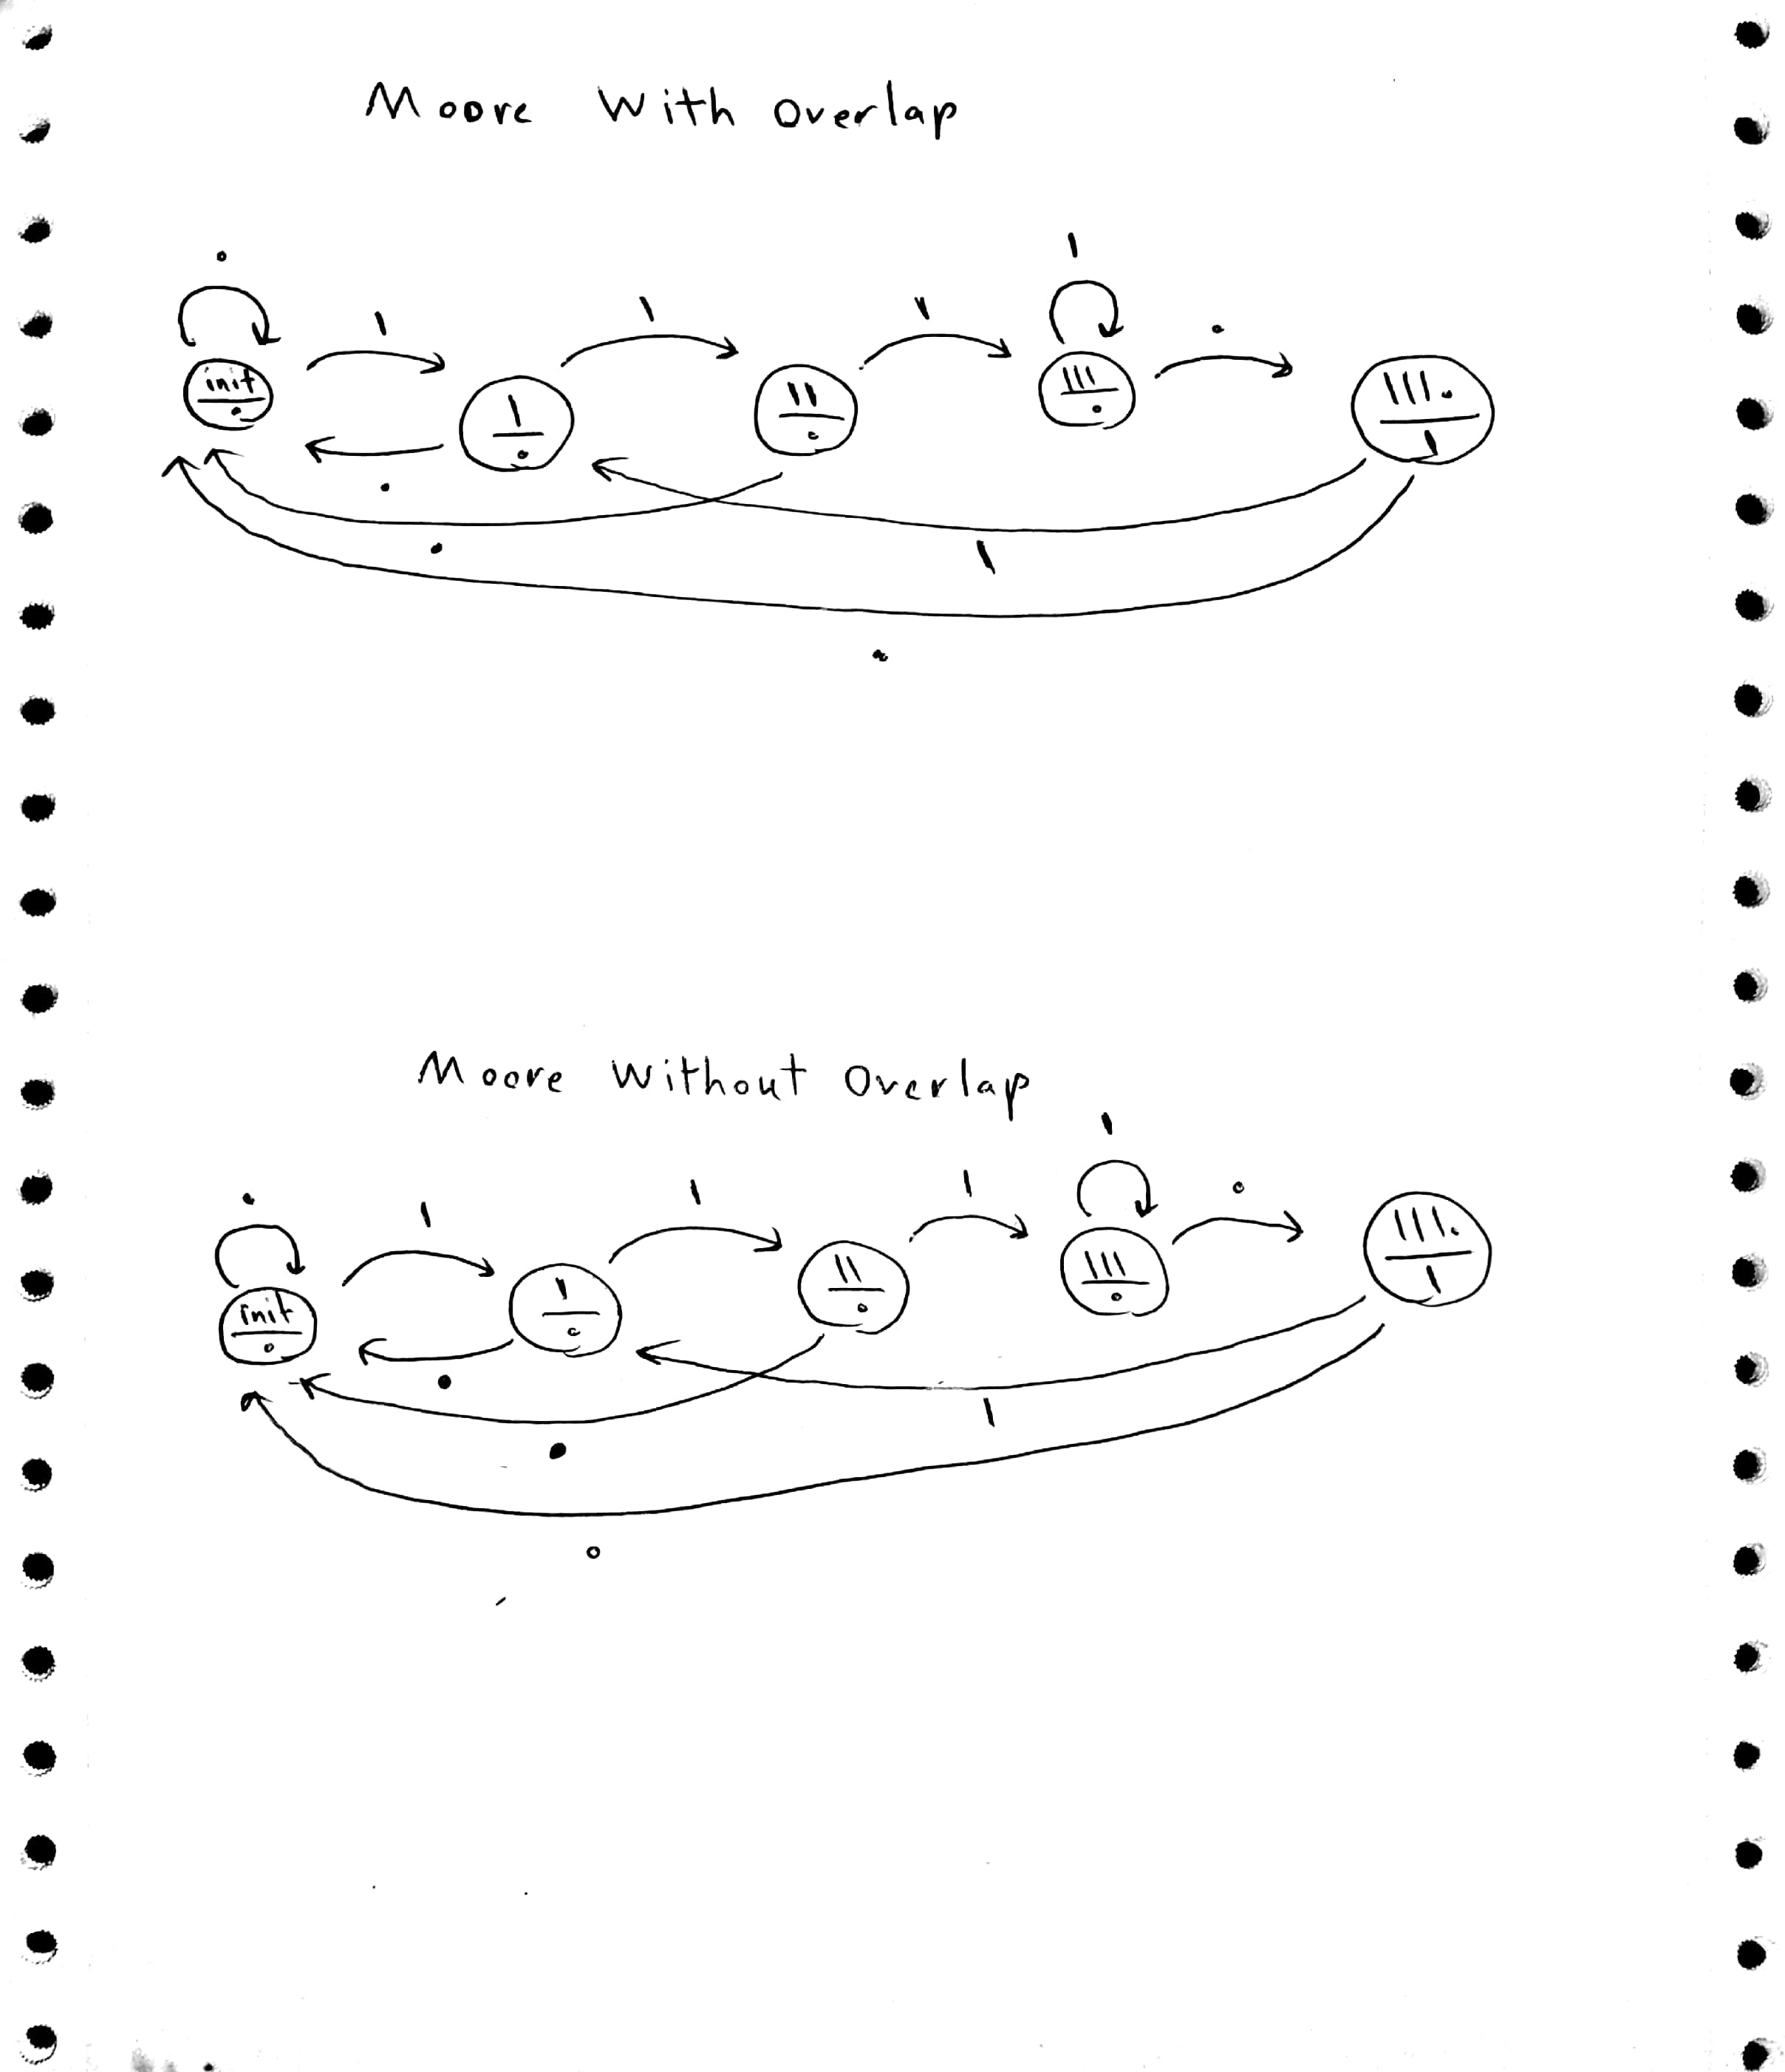 Moore With Overlap
0 1 1 1 1 0
init/0 1/0 11/0 111/0 1110/1
0
0 1
0
Moore Without Overlap
0 1 1 1 1 0
init/0 1/0 11/0 111/0 1110/1
0
0 1
0